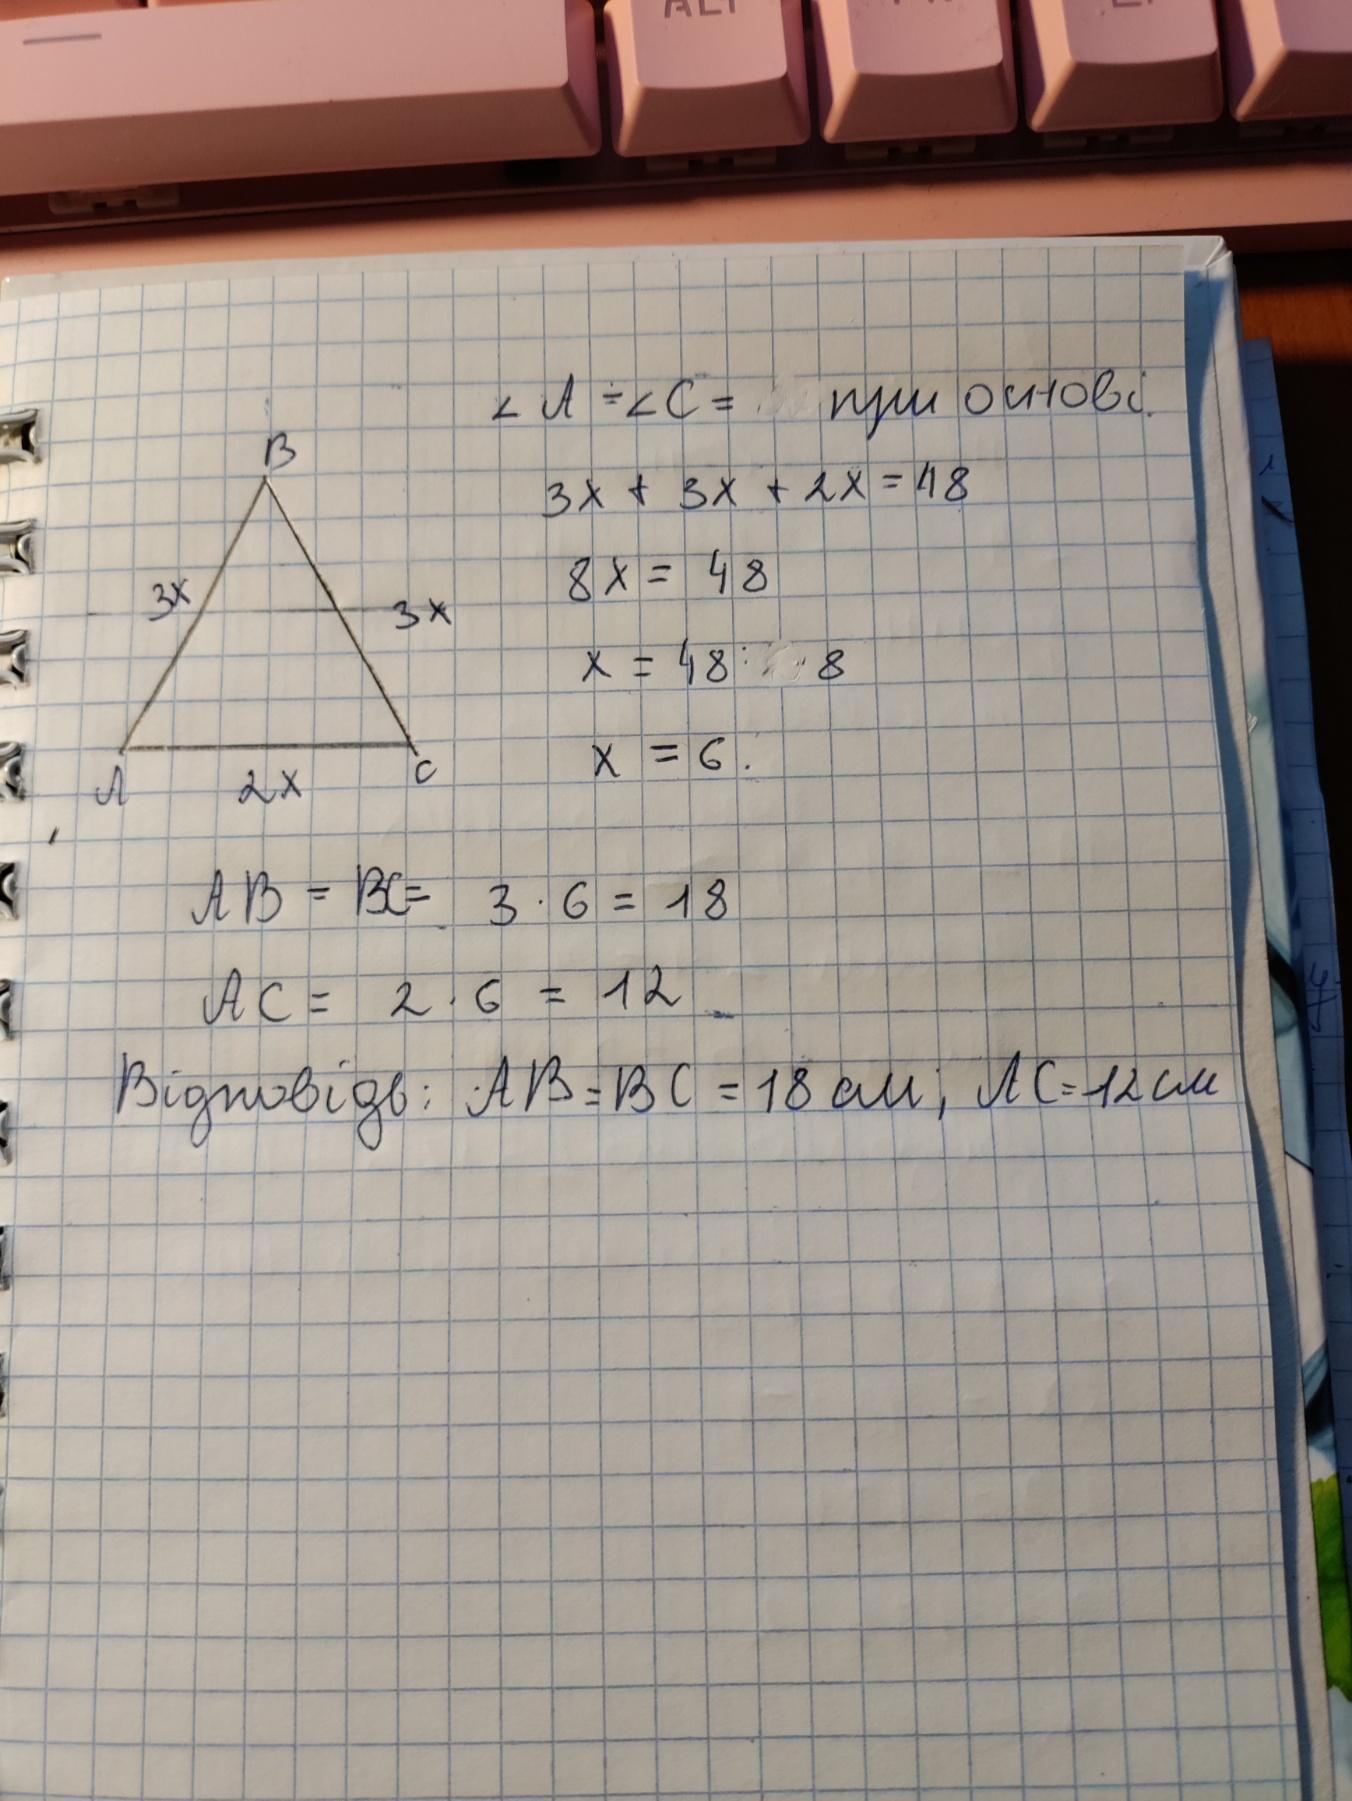 ALT
∠A = ∠C = при основі.
3x + 3x + 2x = 48
8x = 48
x = 48 : 8
x = 6.
B
3x
3x
A
2x
C
AB = BC = 3 · 6 = 18
AC = 2 · 6 = 12
Відповідь: AB = BC = 18 см; AC = 12 см